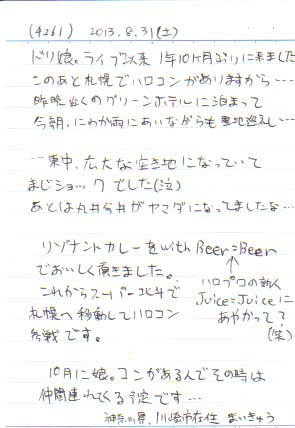 (4261) 2013.8.31(土)
ドリ娘。ライブ以来 1年10ヶ月ぶりに来ました
このあと札幌でハロコンがありますから…
昨晩近くのグリーンホテルに泊まって
今朝、にわか雨にあいながらも聖地巡礼…
…東中、広大な空き地になっていて
まじショックでした(泣)
あとは丸井今井がヤマダになってしましたな…
リゾナントカレーをwith Beer=Beer
でおいしく頂きました。
これからスーパー北斗で
札幌へ移動してハロコン
参戦です。
↑
ハロプロの新人
Juice=Juiceに
あやかって?
(笑)
10月に娘。コンがあるんでその時は
仲間連れてくる予定です…
神奈川県、川崎市在住 まいきゅう